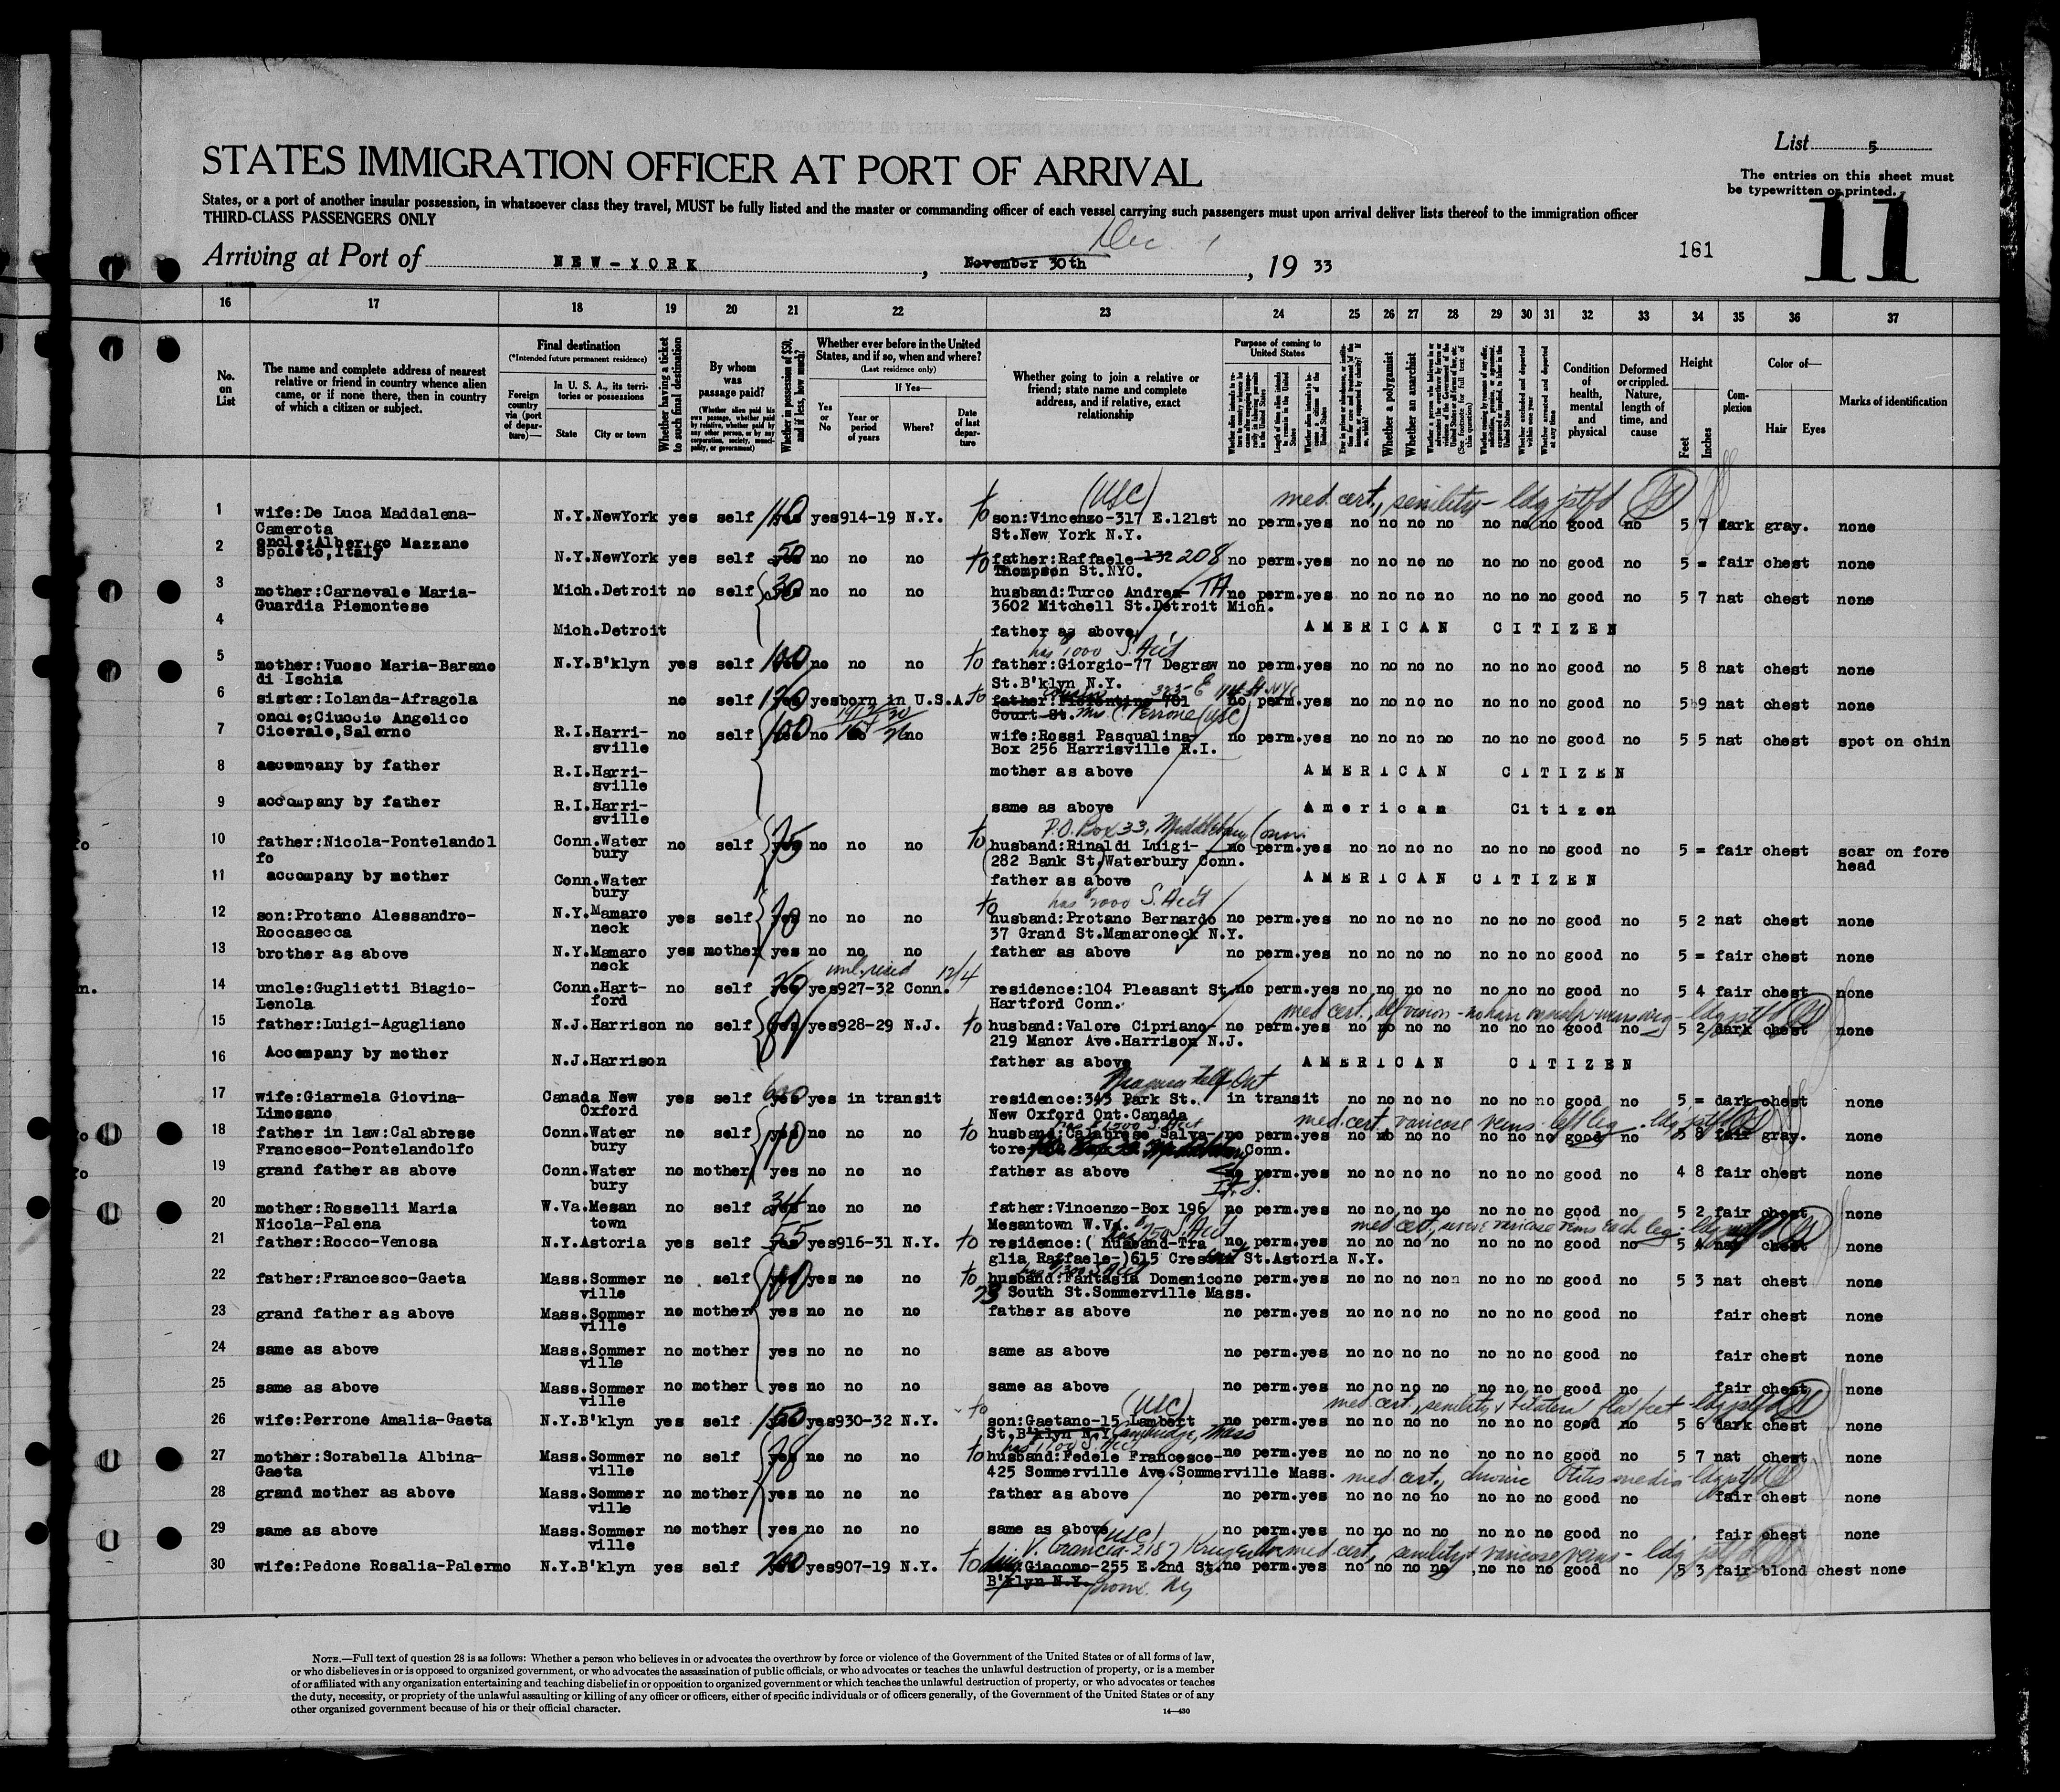 List 5
STATES IMMIGRATION OFFICER AT PORT OF ARRIVAL
The entries on this sheet must
be typewritten or printed.
States, or a port of another insular possession, in whatsoever class they travel, MUST be fully listed and the master or commanding officer of each vessel carrying such passengers must upon arrival deliver lists thereof to the immigration officer
THIRD-CLASS PASSENGERS ONLY
11
Dec 1
161
Arriving at Port of NEW-YORK, November 30th, 19 33
16 17 18 19 20 21 22 23 24 25 26 27 28 29 30 31 32 33 34 35 36 37
No. on List
The name and complete address of nearest
relative or friend in country whence alien
came, or if none there, then in country
of which a citizen or subject.
Final destination
(*Intended future permanent residence)
Foreign country via (port of departure)—
In U. S. A., its territories or possessions
State
City or town
Whether having a ticket to such final destination
By whom was passage paid?
(Whether alien paid his own passage, whether paid by relative, whether paid by any other person, or by any corporation, society, municipality, or government)
Whether in possession of $50, and if less, how much?
Whether ever before in the United States, and if so, when and where?
(Last residence only)
Yes or No
If Yes—
Year or period of years
Where?
Date of last departure
Whether going to join a relative or
friend; state name and complete
address, and if relative, exact
relationship
Purpose of coming to United States
Length of time alien intends to remain in the United States
Whether alien intends to become a citizen of the United States
Whether a polygamist
Whether an anarchist
Whether arrested and deported at any time
Condition of health, mental and physical
Deformed or crippled. Nature, length of time, and cause
Height
Feet
Inches
Complexion
Color of—
Hair
Eyes
Marks of identification
(USC) med. cert., senility
1 wife:De Luca Maddalena- N.Y.NewYork yes self 110 yes 914-19 N.Y. to son:Vincenzo-317 E.121st no perm.yes no no no no no no no good no 5 7 dark gray. none
Camerota St.New York N.Y.
2 oncle:Alberigo Mazzane N.Y.NewYork yes self 50 no no no to father:Raffaele-132 208 no perm.yes no no no no no no no good no 5 = fair chest none
Spoleto,Italy Thompson St.NYC.
3 mother:Carnevale Maria- Mich.Detroit no self 30 no no no husband:Turco Andrea- no perm.yes no no no no no no no good no 5 7 nat chest none
Guardia Piemontese 3602 Mitchell St.Detroit Mich.
4 Mich.Detroit father as above AMERICAN CITIZEN
has $1000 S. Acct
5 mother:Vuoso Maria-Barano N.Y.B'klyn yes self 100 no no no to father:Giorgio-77 Degraw no perm.yes no no no no no no no good no 5 8 nat chest none
di Ischia St.B'klyn N.Y.
6 sister:Iolanda-Afragola no self yes born in U.S.A. to father: 781 no perm.yes no no no no no no no good no 5 9 nat chest none
Court St. Mrs C. Perrone (USC)
7 oncle:Ciuccio Angelico R.I.Harri- no self 100 no no wife:Rossi Pasqualina- no perm.yes no no no no no no no good no 5 5 nat chest spot on chin
Cicerale,Salerno sville Box 256 Harrisville R.I.
8 accompany by father R.I.Harri- mother as above AMERICAN CITIZEN
sville
9 accompany by father R.I.Harri- same as above American Citizen
sville
P.O. Box 33, Middlebury Conn
10 father:Nicola-Pontelandol Conn.Water no self 75 no no no to husband:Rinaldi Luigi- no perm.yes no no no no no no no good no 5 = fair chest scar on fore
fo bury 282 Bank St,Waterbury Conn. head
11 accompany by mother Conn.Water father as above AMERICAN CITIZEN
bury
has $2000 S. Acct
12 son:Protano Alessandro- N.Y.Mamaro yes self no no no to husband:Protano Bernardo no perm.yes no no no no no no no good no 5 2 nat chest none
Roccasecca neck 37 Grand St.Mamaroneck N.Y.
13 brother as above N.Y.Mamaro yes mother yes no no no father as above no perm.yes no no no no no no no good no 5 = fair chest none
neck
12/4
14 uncle:Guglietti Biagio- Conn.Hart- no self yes 927-32 Conn. residence:104 Pleasant St. no perm.yes no no no no no no no good no 5 4 fair chest none
Lenola ford Hartford Conn.
15 father:Luigi-Agugliano N.J.Harrison no self yes 928-29 N.J. to husband:Valore Cipriano- no perm.yes no no no no no no no good no 5 2 dark chest none
219 Manor Ave.Harrison N.J.
16 Accompany by mother N.J.Harrison father as above AMERICAN CITIZEN
Niagara Falls Ont
17 wife:Giarmela Giovina- Canada New yes self 600 yes in transit residence:343 Park St. in transit no no no no no no no good no 5 = dark chest none
Limosano Oxford New Oxford Ont.Canada
med. cert. varicose veins left leg
18 father in law:Calabrese Conn.Water no self 110 no no no to husband:Calabrese Salva- no perm.yes no no no no no no no good no 5 8 fair gray. none
Francesco-Pontelandolfo bury tore Conn.
19 grand father as above Conn.Water no mother yes no no no father as above no perm.yes no no no no no no no good no 4 8 fair chest none
bury
20 mother:Rosselli Maria W.Va.Mesan no self no no no father:Vincenzo-Box 196 no perm.yes no no no no no no no good no 5 2 fair chest none
Nicola-Palena town Mesantown W.Va.
med cert., severe varicose veins each leg
21 father:Rocco-Venosa N.Y.Astoria yes self 55 yes 916-31 N.Y. to residence:( husband-Tra no perm.yes no no no no no no no good no 5 4 nat chest none
glia Raffaele-)615 Crescent St.Astoria N.Y.
22 father:Francesco-Gaeta Mass.Sommer no self 100 yes no no to husband:Fantasia Domenico no perm.yes no no no non no no no good no 5 3 nat chest none
ville 23 South St.Sommerville Mass.
23 grand father as above Mass.Sommer no mother yes no no no father as above no perm.yes no no no no no no no good no fair chest none
ville
24 same as above Mass.Sommer no mother yes no no no same as above no perm.yes no no no no no no no good no fair chest none
ville
25 same as above Mass.Sommer no mother yes no no no same as above no perm.yes no no no no no no no good no fair chest none
ville
(USC) med cert., senility & bilateral flat feet
26 wife:Perrone Amalia-Gaeta N.Y.B'klyn yes self 150 yes 930-32 N.Y. to son:Gaetano-15 Lambert no perm.yes no no no no no no no good no 5 6 dark chest none
St.B'klyn N.Y. Cambridge, Mass
27 mother:Sorabella Albina- Mass.Sommer no self no no no to husband:Fedele Francesco- no perm.yes no no no no no no no good no 5 7 nat chest none
Gaeta ville 425 Sommerville Ave.Sommerville Mass. med cert., chronic Otitis media
28 grand mother as above Mass.Sommer no mother yes no no no father as above no perm.yes no no no no no no no good no fair chest none
ville
29 same as above Mass.Sommer no mother yes no no no same as above no perm.yes no no no no no no no good no fair chest none
ville
(USC) med cert, senility & varicose veins
30 wife:Pedone Rosalia-Palermo N.Y.B'klyn yes self 200 yes 907-19 N.Y. to Giacomo-255 E.2nd St. no perm.yes no no no no no no no good no 5 3 fair blond chest none
B'klyn N.Y. Bronx Ny
NOTE.—Full text of question 28 is as follows: Whether a person who believes in or advocates the overthrow by force or violence of the Government of the United States or of all forms of law,
or who disbelieves in or is opposed to organized government, or who advocates the assassination of public officials, or who advocates or teaches the unlawful destruction of property, or is a member
of or affiliated with any organization entertaining and teaching disbelief in or opposition to organized government or which teaches the unlawful destruction of property, or who advocates or teaches
the duty, necessity, or propriety of the unlawful assaulting or killing of any officer or officers, either of specific individuals or of officers generally, of the Government of the United States or of any
other organized government because of his or their official character.
14—430